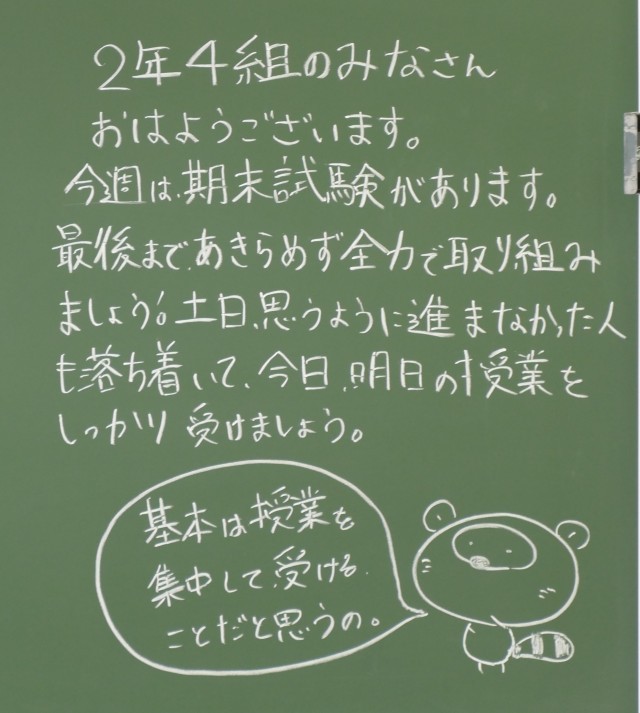 2年4組のみなさん
おはようございます。
今週は、期末試験があります。
最後まであきらめず全力で取り組み
ましょう!土日、思うように進まなかった人
も落ち着いて、今日、明日の授業を
しっかり受けましょう。
基本は授業を
集中して、受ける
ことだと思うの。